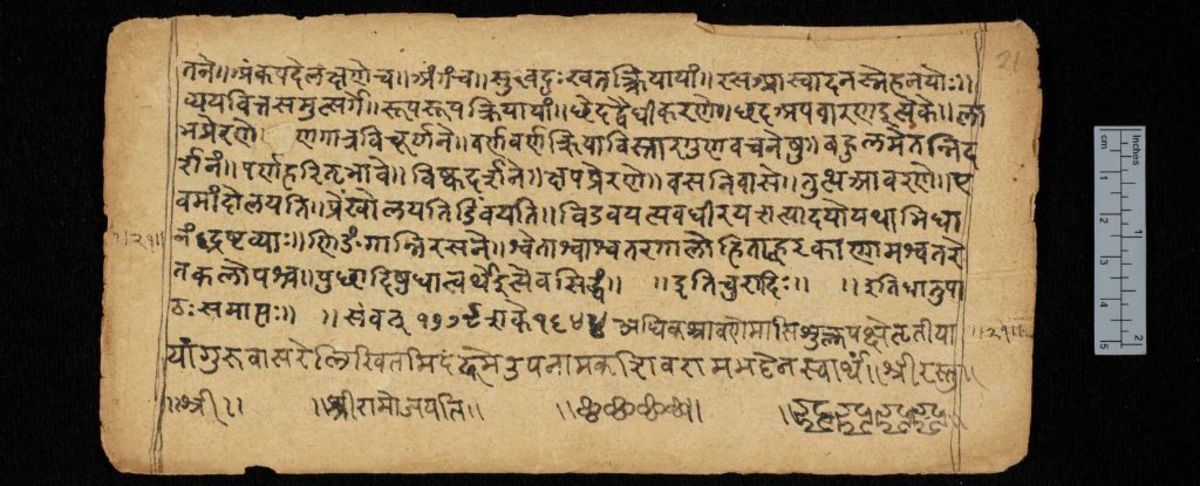 21
तने॥ अंक पदे लक्षणे च॥ अंगं च॥ सुख दुःख तत्क्रियायां॥ रस आस्वादनस्नेहनयोः॥
व्यय वित्तसमुत्सर्गे॥ रूप रूपक्रियायां॥ छेद द्वैधीकरणे॥ छद अपवारण इत्येके॥ ला
भ प्रेरणे॥ व्रण गात्रविचूर्णने॥ वर्ण वर्णक्रियाविस्तारगुणवचनेषु॥ बहुलमेतन्निद
र्शनं॥ पर्ण हरितभावे॥ विष्क दर्शने॥ क्षप प्रेरणे॥ वस निवासे॥ तुत्थ आवरणे॥ ए
वमांदोलयति॥ प्रेंखोलयति विडंबयति॥ अवधीरय इत्यादयो यथाभिधा
नं द्रष्टव्याः॥ णिङंगान्निरसने॥ श्वेताश्वाश्वतरगालोडिताह्वरकाणामश्वतरे
तकलोपश्च॥ पुच्छादिषु धात्वर्थ इत्येव सिद्धं॥ ॥ इति चुरादिः॥ ॥ इति धातुपा
ठः समाप्तः॥ ॥ संवत् १७७९ शके १६४४ अधिकश्रावणे मासि शुक्लपक्षे तृतीया
यां गुरुवासरे लिखितमिदं उपनामक शिवराम स्वार्थं॥ श्रीरस्तु॥
॥श्री॥ ॥श्रीरामो जयति॥ ॥छ॥छ॥छ॥छ॥
॥२१॥
॥२१॥
Inches
1
2
cm
1
2
3
4
5